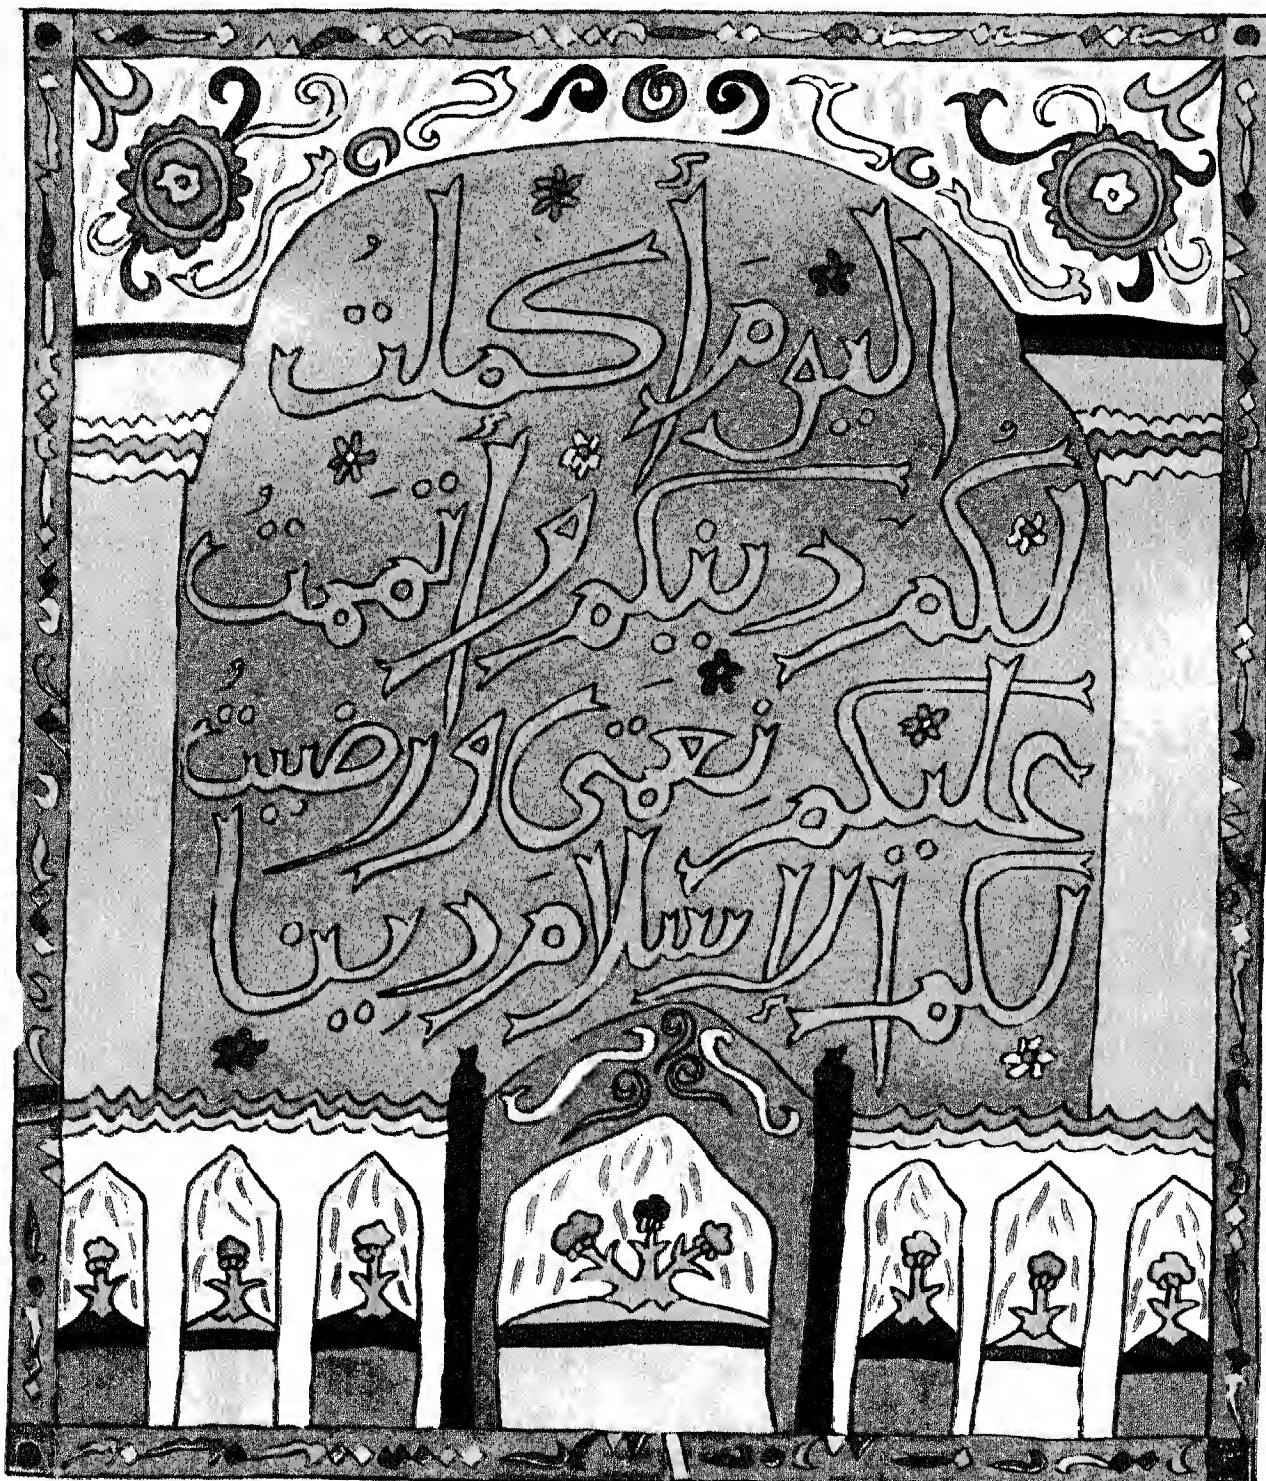 اليوم أكملت
لكم دينكم وأتممت
عليكم نعمتى ورضيت
لكم الإسلام دينا